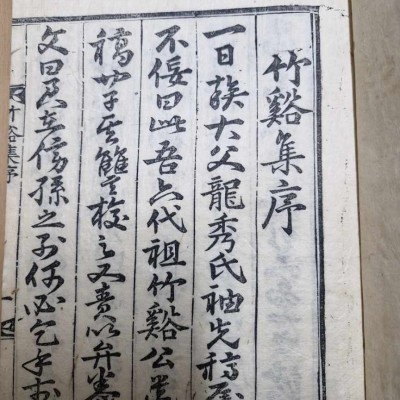 竹谿集序
一日族大父龍秀氏袖先稿屬
不佞曰此吾六代祖竹谿公遺
稿也子讎校之又責以弁卷
文曰在傍孫之列何必乞
竹谿集序